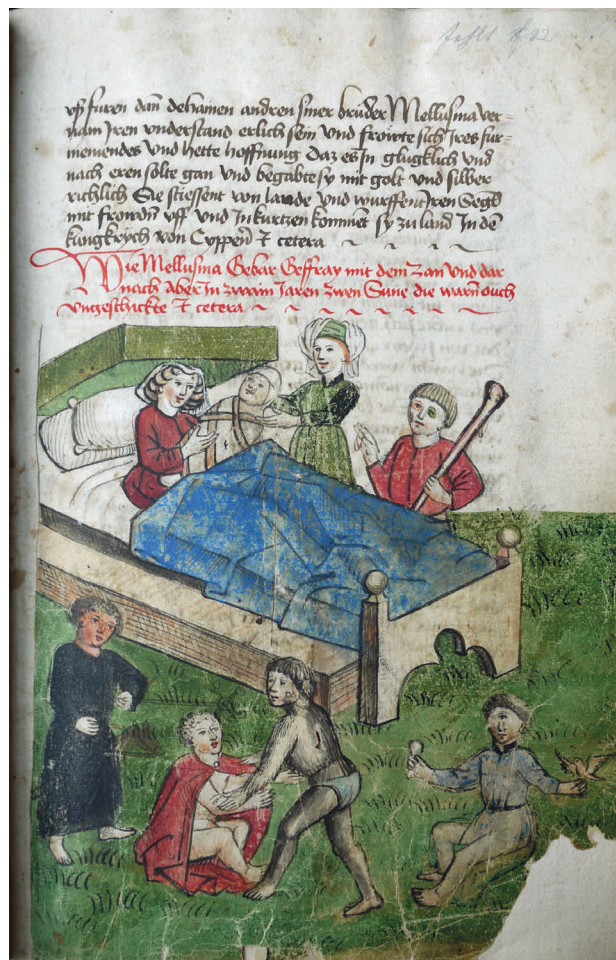 fehlt f. 22
uß furen dan dehamen andren siner brüder Mellusina ver-
nam Jren understand erlich sein Und frowte sich Jres fur-
nemendes Und hette hoffnung daz es Jn glugklich Und
nach eren solte gan Und begabte sy mit golt und silber
richlich Sie stiessent von lande Und wurffent Jren Segel
mit frowdn uff und Jn kurtzen komnet sy zu land Jn de
kungkrych von Cyppen &amp; cetera
Wie Mellusina Gebar Geffray mit dem Zan Und dar
nach Aber Jn zwain Jaren zwen Sune die warn ouch
Ungeschickte &amp; cetera